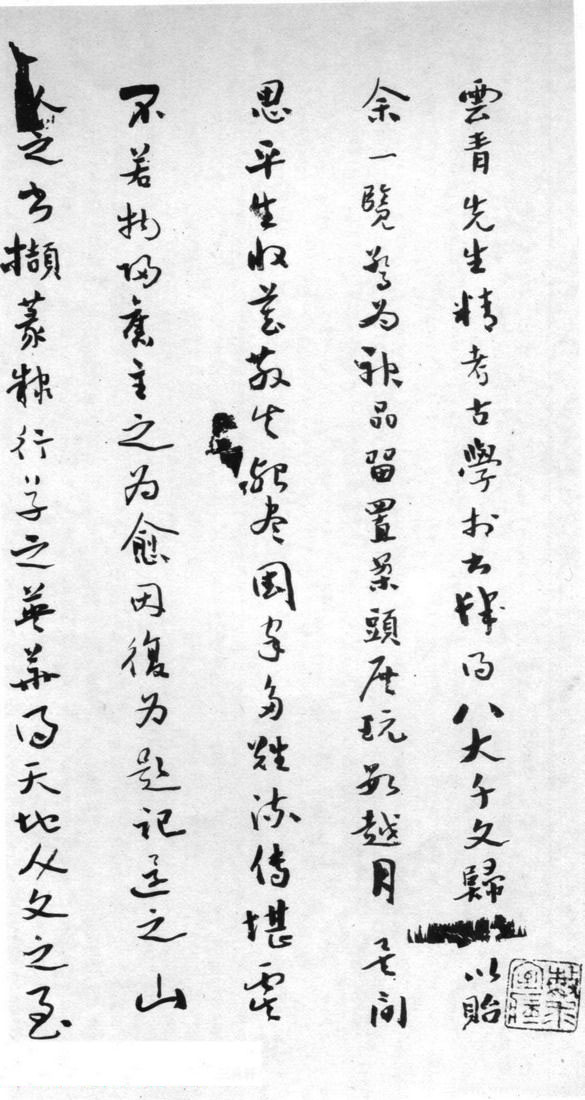 雲青先生精考古學於書肆得八大千文歸以貽
余一覽驚為神品留置案頭展玩數越月其間
思平生收藏散失殆盡國家多難流傳堪虞
不若物歸舊主之為愈因復為題記還之山
人之書擷篆隸行草之英華得天地人文之至